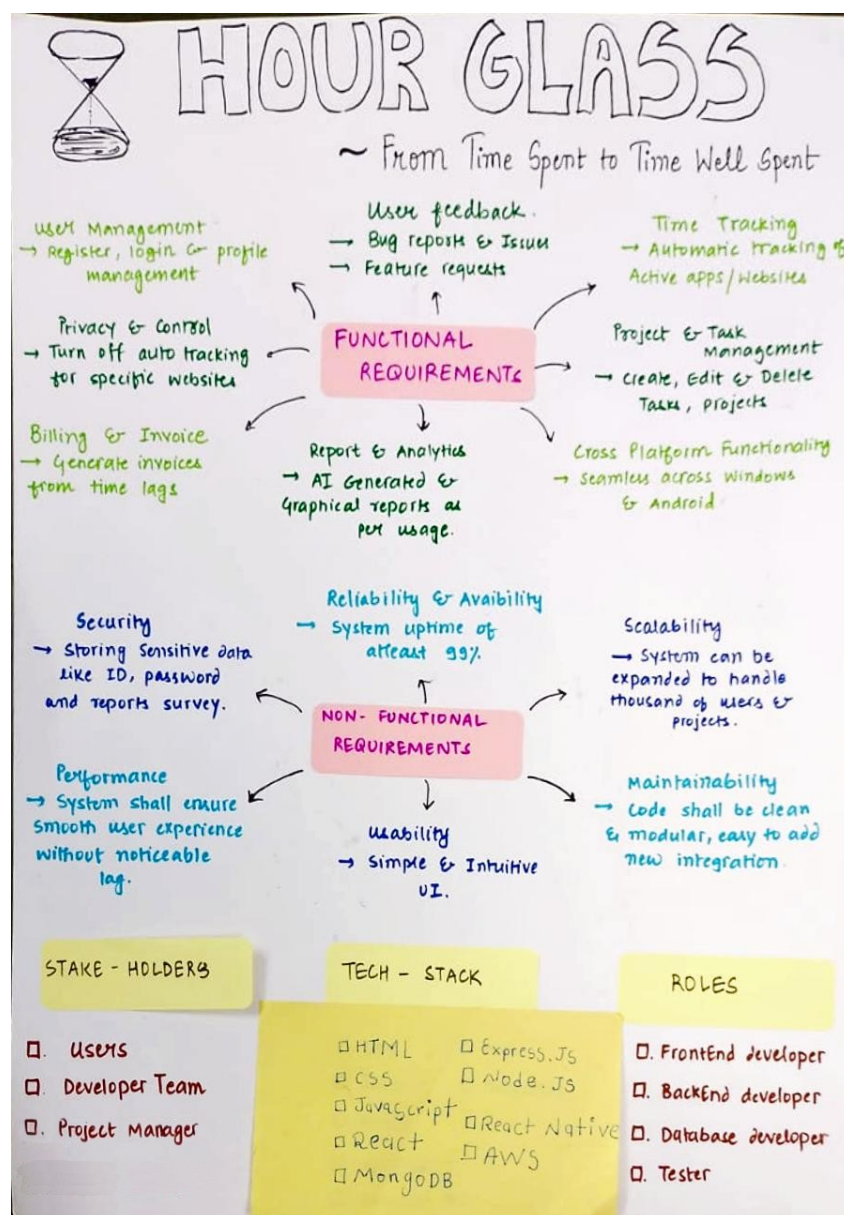 HOUR GLASS
~ From Time Spent to Time Well Spent
User Management
→ Register, login & profile
management
User feedback.
→ Bug reports & Issues
→ Feature requests
Time Tracking
→ Automatic tracking of
Active apps/websites
Privacy & Control
→ Turn off auto tracking
for specific websites
FUNCTIONAL
REQUIREMENTS
Project & Task
Management
→ Create, Edit & Delete
Tasks, projects
Billing & Invoice
→ Generate invoices
from time lags
Report & Analytics
→ AI Generated &
Graphical reports as
per usage.
Cross Platform Functionality
→ Seamless across Windows
& Android
Security
→ Storing Sensitive data
like ID, password
and reports survey.
Reliability & Avaibility
→ System uptime of
atleast 99%
Scalability
→ System can be
expanded to handle
thousand of users &
projects.
NON- FUNCTIONAL
REQUIREMENTS
Performance
→ System shall ensure
smooth user experience
without noticeable
lag.
Usability
→ Simple & Intuitive
UI.
Maintainability
→ Code shall be clean
& modular, easy to add
new integration.
STAKE - HOLDERS
□. Users
□. Developer Team
□. Project Manager
TECH - STACK
□ HTML
□ CSS
□ Javascript
□ React
□ MongoDB
□ Express.Js
□ Node.Js
□ React Native
□ AWS
ROLES
□. FrontEnd developer
□. BackEnd developer
□. Database developer
□. Tester